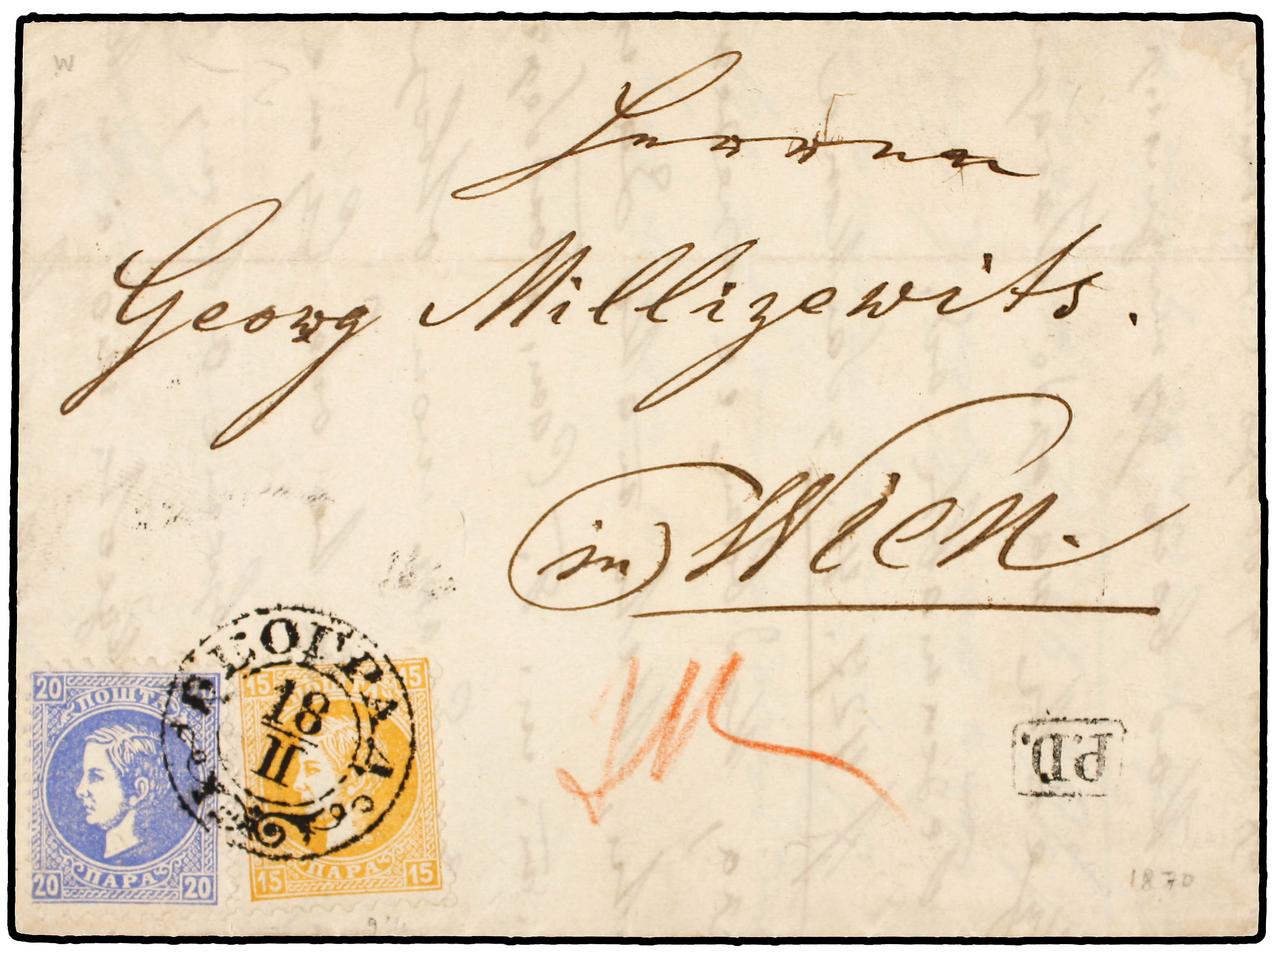 W
Herrn
Georg Millizewits.
(in) Wien.
20
ПОШТА
20 ПАРА 20
15 15
15 ПАРА 15
БЕОГРАД
18
II
P.D.
1870
9½